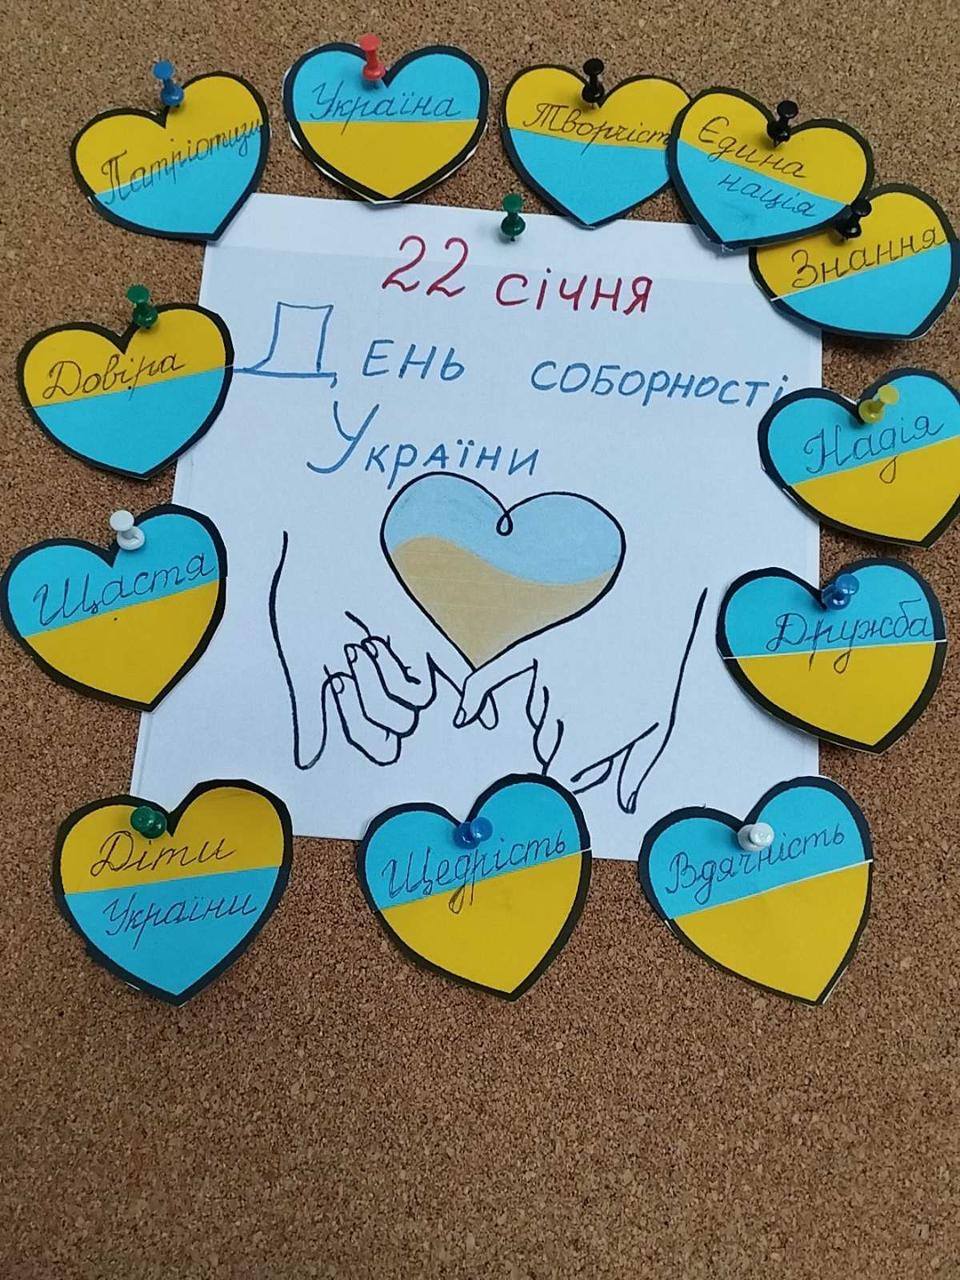 Патріотизм
Україна
Творчіст
Єдина
нація
Знання
22 січня
День соборності
України
Довіра
Надія
Щастя
Дружба
Діти
України
Щедрість
Вдячність